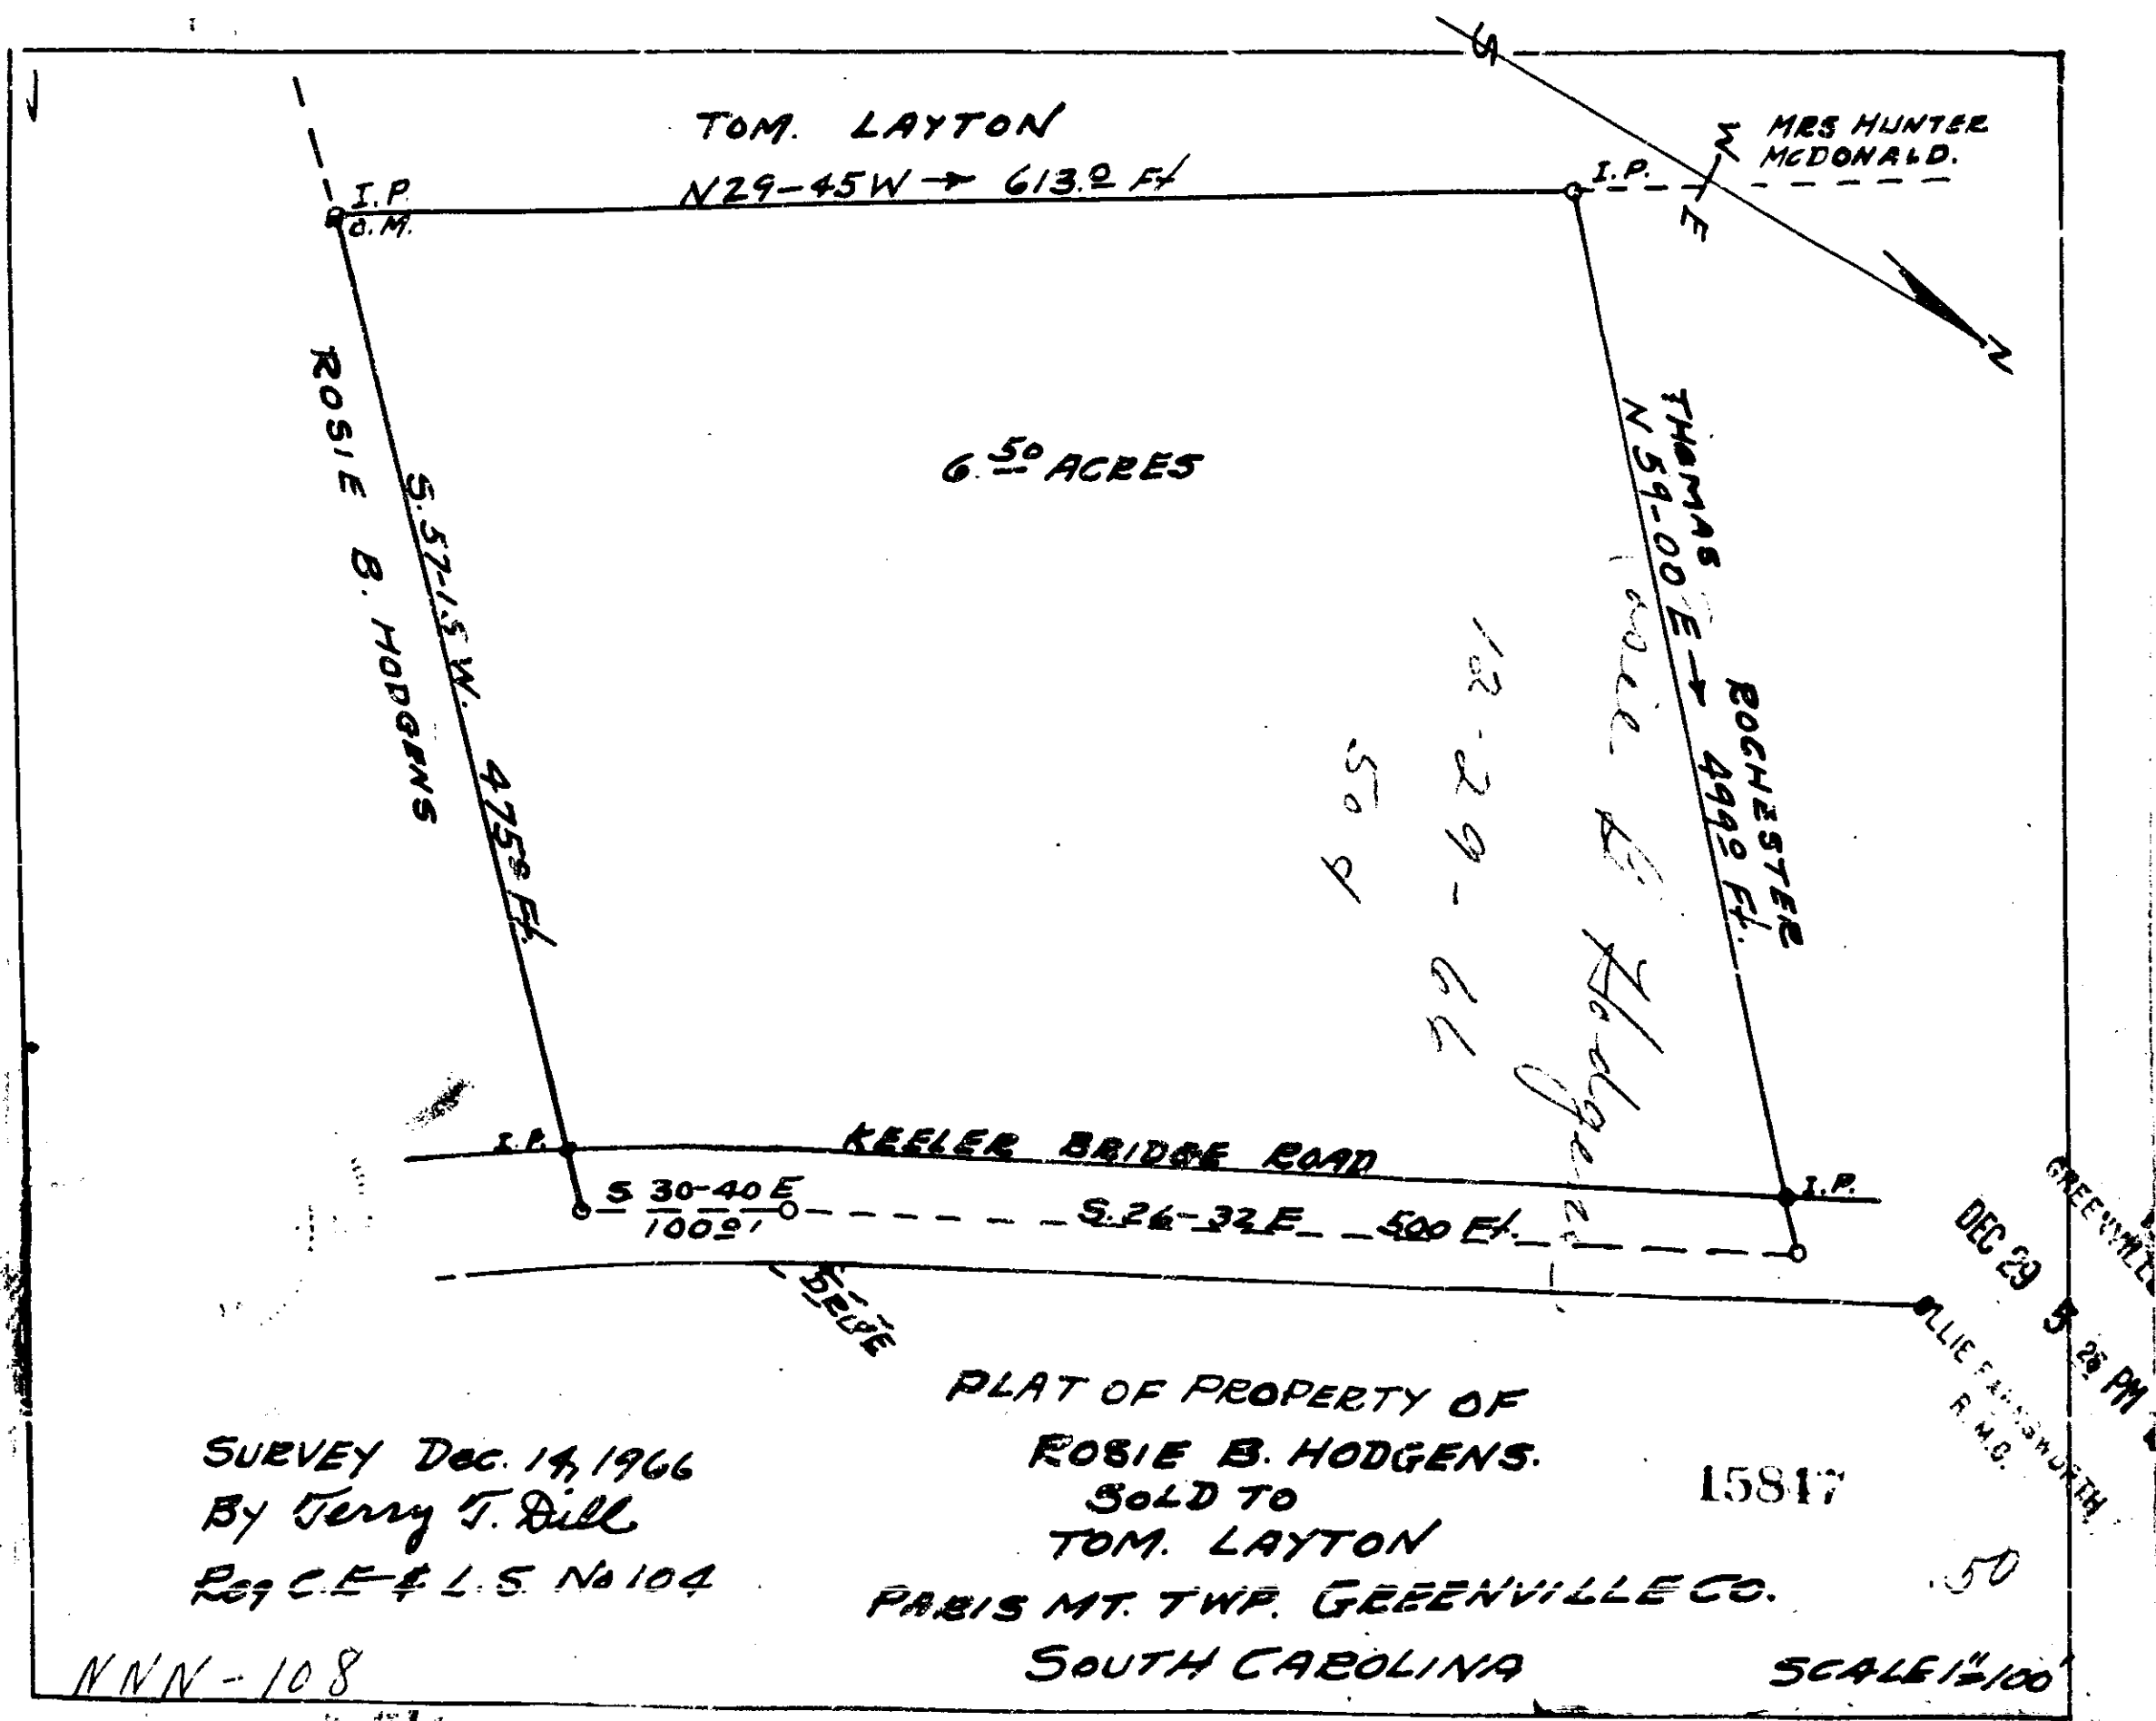 S
TOM. LAYTON
N29-45W → 613.0 Ft
MRS HUNTER
McDONALD.
W
E
N
I.P.
O.M.
I.P.
ROSIE B. HODGENS
S.57-15 W. 475.0 Ft.
6.50 ACRES
THOMAS ROCHESTER
N 59-00 E → 499.0 Ft.
B Hodgens
12-29-66
50
I.P.
KEELER BRIDGE ROAD
I.P.
S 30-40 E
100.0'
S.26-32 E 500 Ft.
DRIVE
GREENVILLE
DEC 29 5 26 PM
OLLIE FARNSWORTH
R.M.C.
PLAT OF PROPERTY OF
ROSIE B. HODGENS.
SOLD TO
TOM. LAYTON
PARIS MT. TWP. GREENVILLE CO.
SOUTH CAROLINA
SURVEY Dec. 14, 1966
By Terry T. Dill
Reg C.E & L.S No 104
15847
.50
NNN-108
SCALE 1"=100'